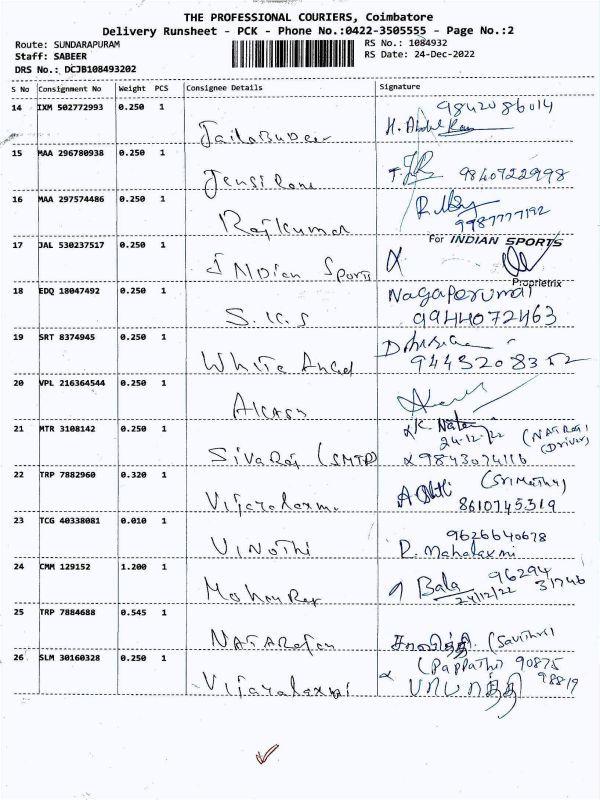 THE PROFESSIONAL COURIERS, Coimbatore
Delivery Runsheet - PCK - Phone No.:0422-3505555 - Page No.:2
Route: SUNDARAPURAM
RS No.: 1084932
Staff: SABEER
RS Date: 24-Dec-2022
DRS No.: DCJB108493202
S No Consignment No Weight PCS Consignee Details Signature
14 IXM 502772993 0.250 1
9842086014
15 MAA 296780938 0.250 1
9840722998
16 MAA 297574486 0.250 1
Rajkumar
17 JAL 530237517 0.250 1
For INDIAN SPORTS
INDian Sports
Proprietrix
18 EDQ 18047492 0.250 1
Nagaperumal
S.K.S 9944072463
19 SRT 8374945 0.250 1
White Angel 9443208352
20 VPL 216364544 0.250 1
Akash
21 MTR 3108142 0.250 1
24-12-22 (Driver)
SivaRaj (SMTP) 9843074116
22 TRP 7882960 0.320 1
Vijayalaxmi 8610745319
23 TCG 40338081 0.010 1
9626640678
VINOTHI P. Mahalaxmi
24 CMM 129152 1.200 1
Bala 96294 31746
24/12/22
25 TRP 7884688 0.545 1
NATARajan (Savithri)
26 SLM 30160328 0.250 1
(Pappathi) 90875
98819
Vijayalaxmi